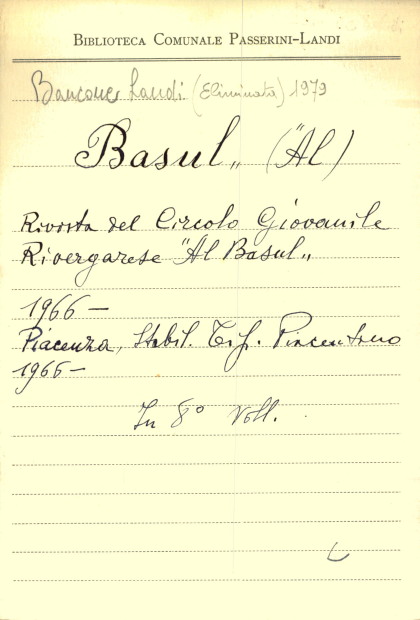 BIBLIOTECA COMUNALE PASSERINI-LANDI
Bancone Landi (Eliminata) 1979
Basul„ ("Al)
Rivista del Circolo Giovanile
Rivergarese "Al Basul„
1966 —
Piacenza, Stabil. Tip. Piacentino
1966 —
In 8° Voll.